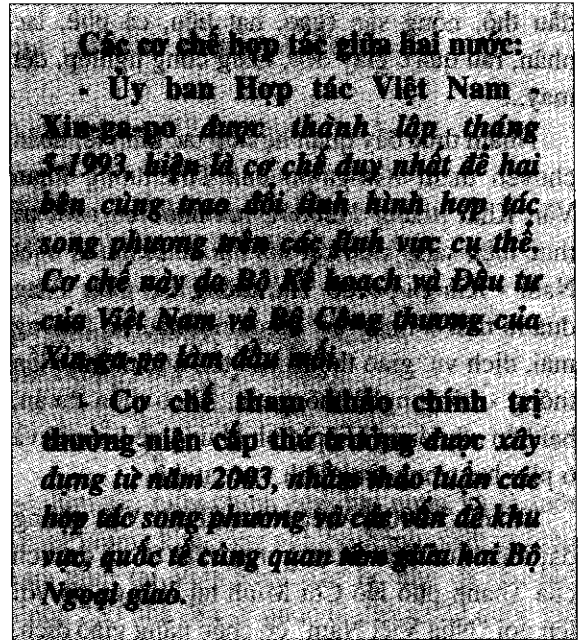 Các cơ chế hợp tác giữa hai nước:
- Ủy ban Hợp tác Việt Nam -
Xin-ga-po được thành lập tháng
5-1993, hiện là cơ chế duy nhất để hai
bên cùng trao đổi tình hình hợp tác
song phương trên các lĩnh vực cụ thể.
Cơ chế này do Bộ Kế hoạch và Đầu tư
của Việt Nam và Bộ Công thương của
Xin-ga-po làm đầu mối.
- Cơ chế tham khảo chính trị
thường niên cấp thứ trưởng được xây
dựng từ năm 2003, nhằm thảo luận các
hợp tác song phương và các vấn đề khu
vực, quốc tế cùng quan tâm giữa hai Bộ
Ngoại giao.